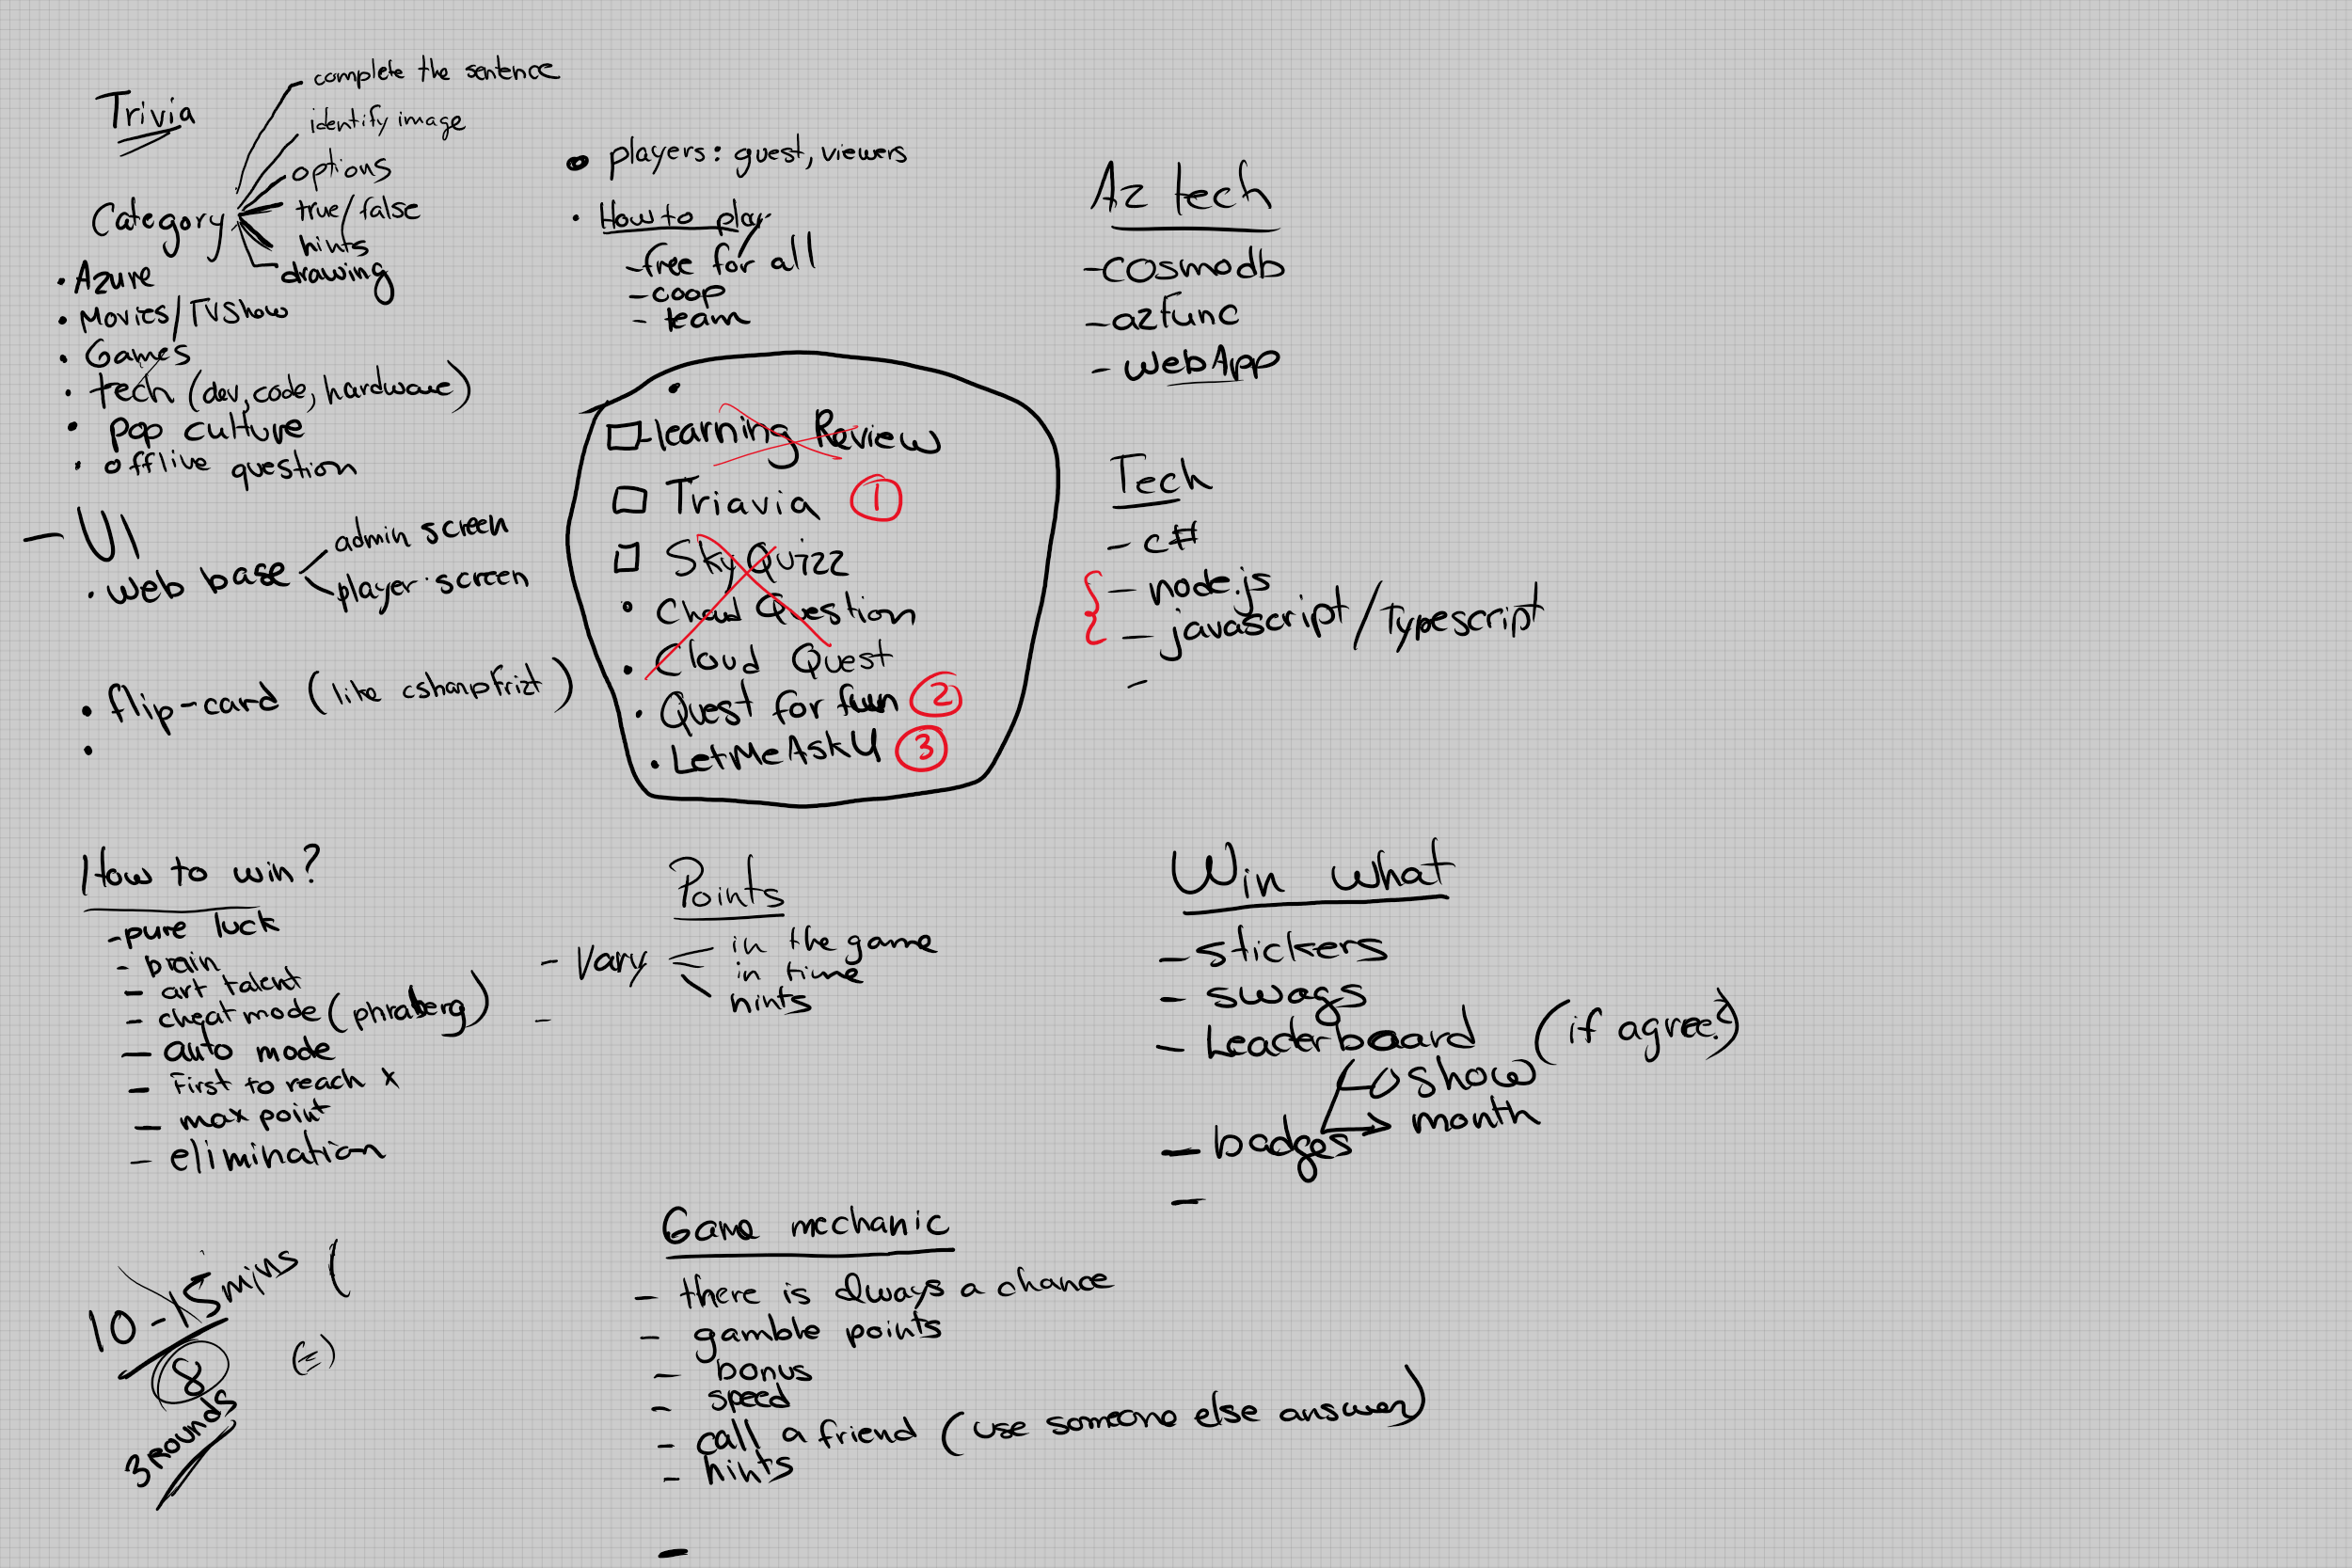 Trivia
complete the sentence
identify image
options
true/false
hints
drawing
Category
• Azure
• Movies/TVShow
• Games
• tech (dev, code, hardware)
• pop culture
• offlive question
- UI
• web base
admin screen
player screen
• flip-card (like csharpfrizt)
•
• players: guest, viewers
• How to play
- free for all
- coop
- team
•
- learning Review
Triavia 1
Sky Quizz
Question
• Cloud Quest
• Quest for fun 2
• LetMeAskU 3
Az tech
- cosmodb
- azfunc
- WebApp
Tech
- c#
- node.js
- javascript/Typescript
-
How to win?
- pure luck
- brain
- art talent
- cheat mode
- auto mode
- First to reach x
- max point
- elimination
Points
- Vary
in the game
in time
hints
-
Win what
- stickers
- swags
- Leaderboard (if agree?)
show
month
- badges
-
10-15 mins (
8
3 ROUNDS
Game mechanic
- there is always a chance
- gamble points
- bonus
- speed
- call a friend (use someone else answer)
- hints
-